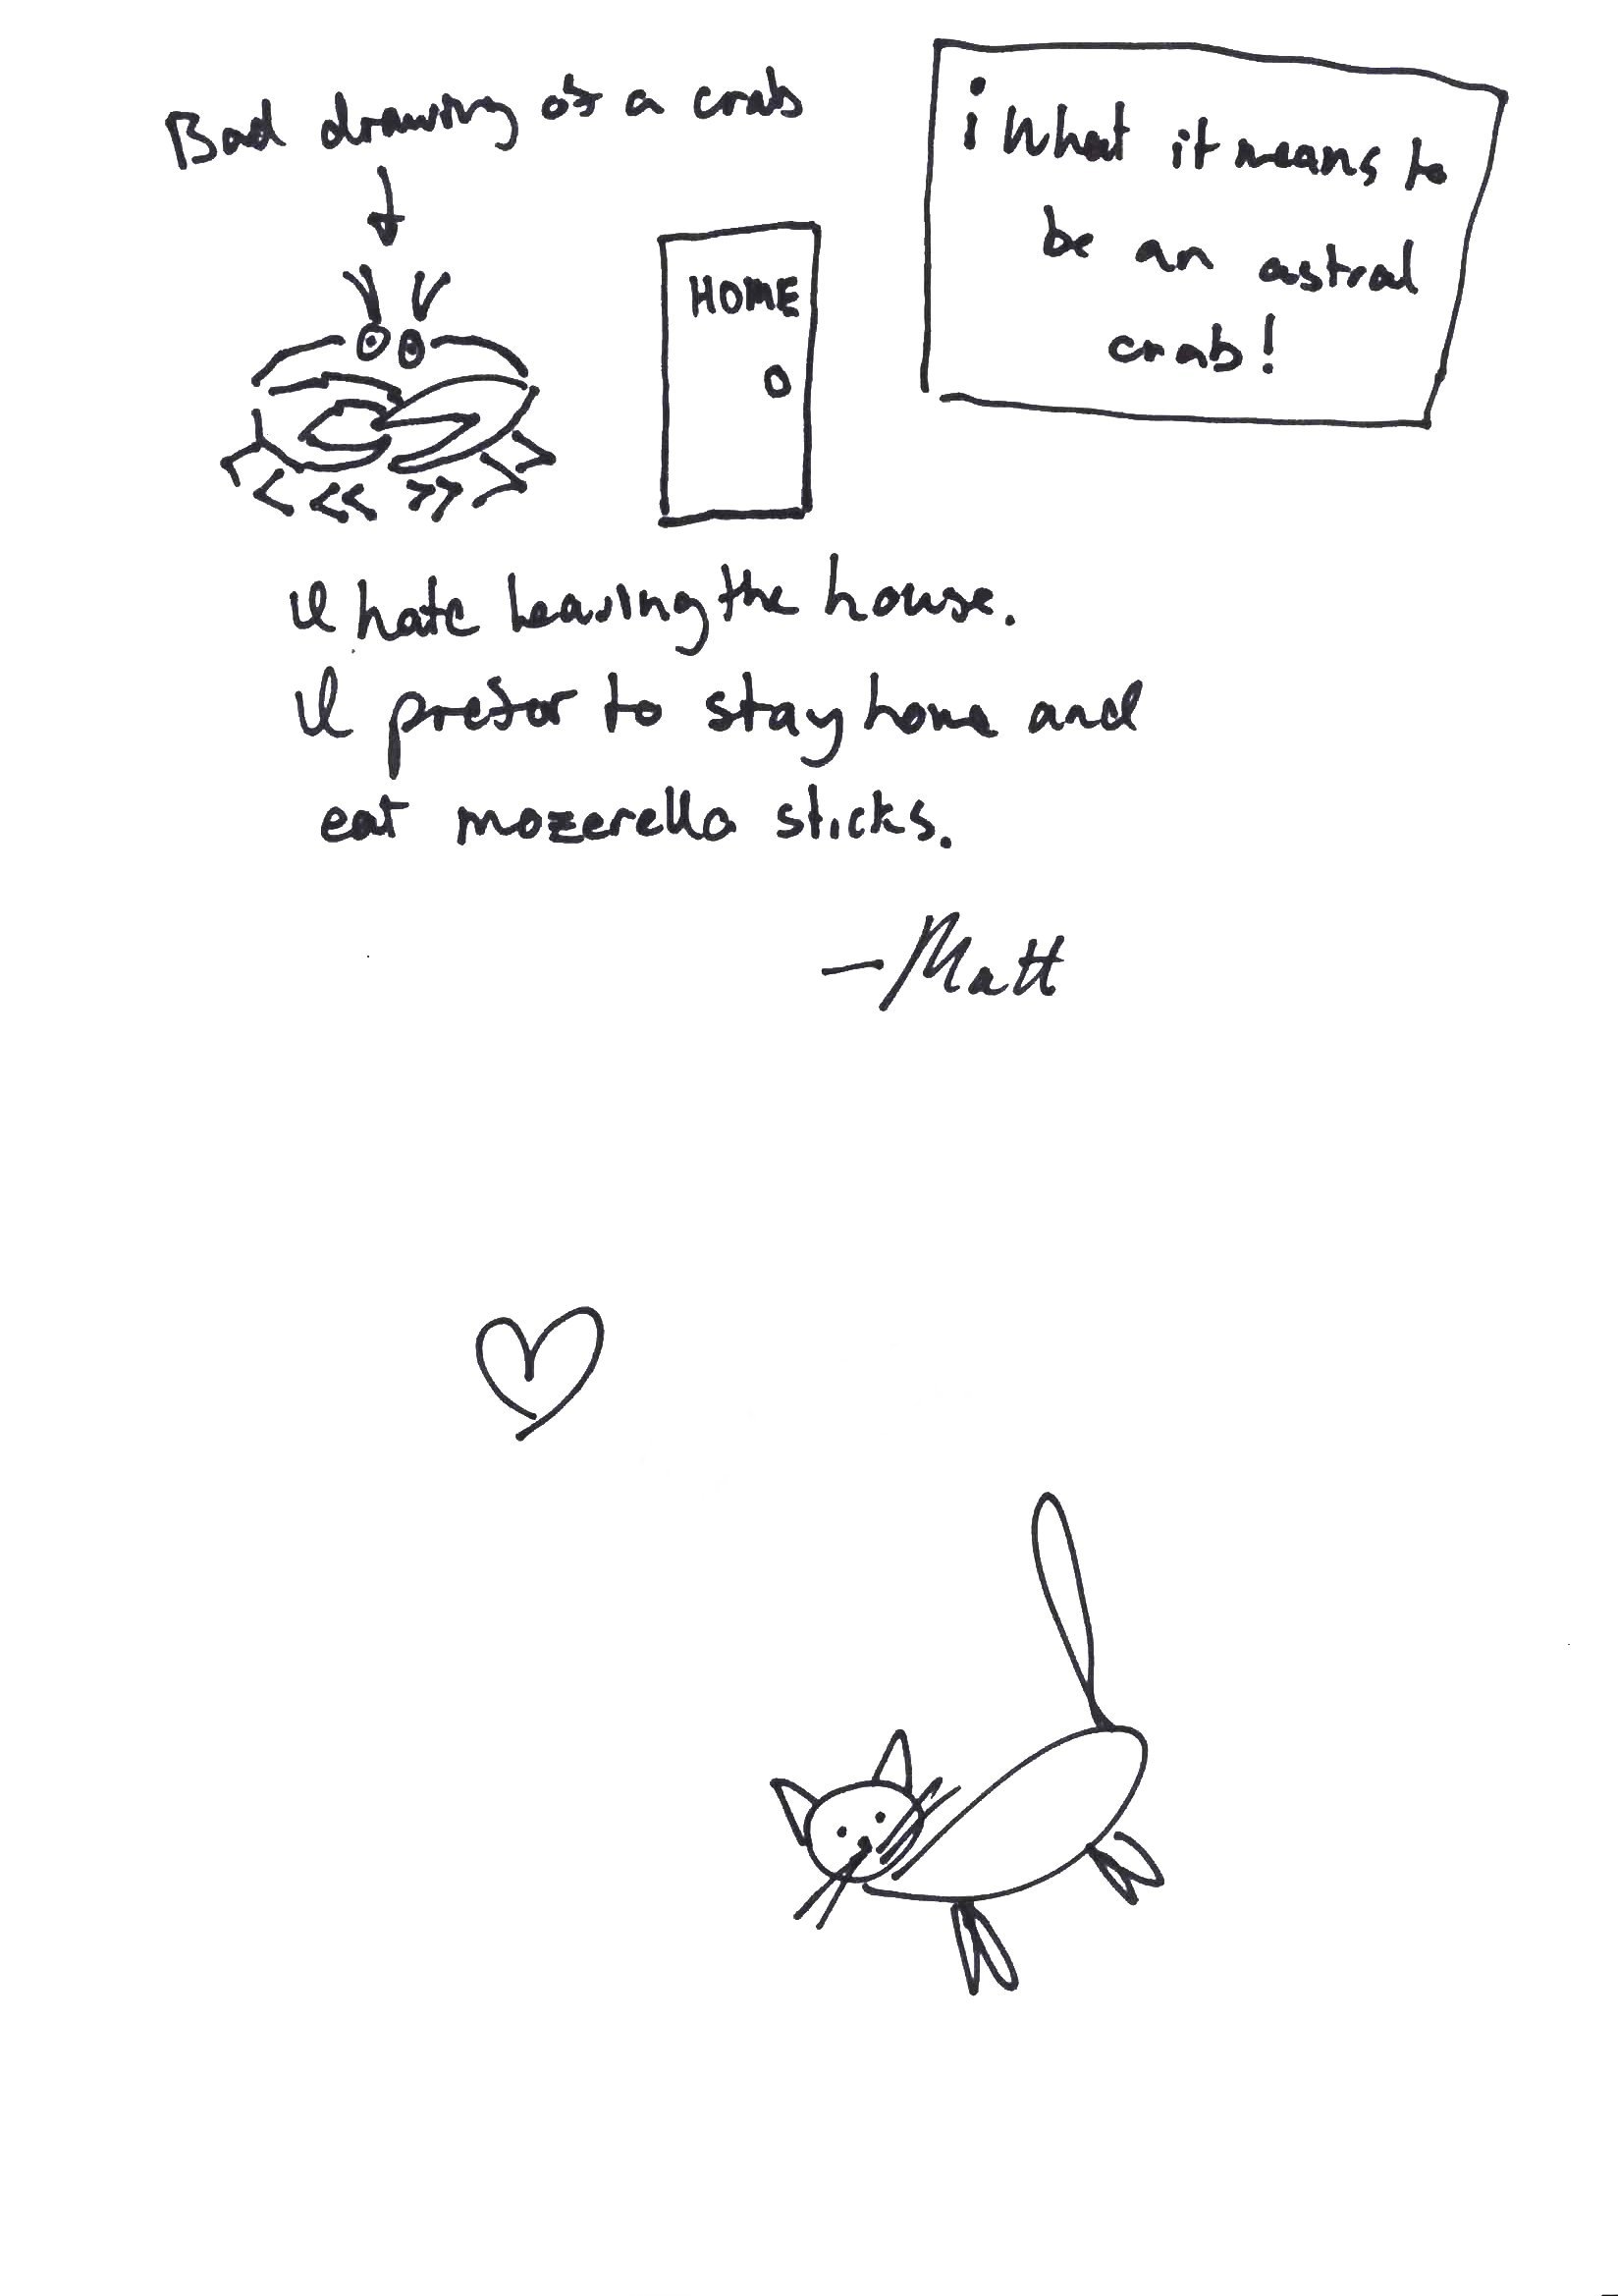 Bad drawing of a crab
HOME
¡What it means to
be an astral
crab!
I hate leaving the house.
I prefer to stay home and
eat mozerella sticks.
—Matt